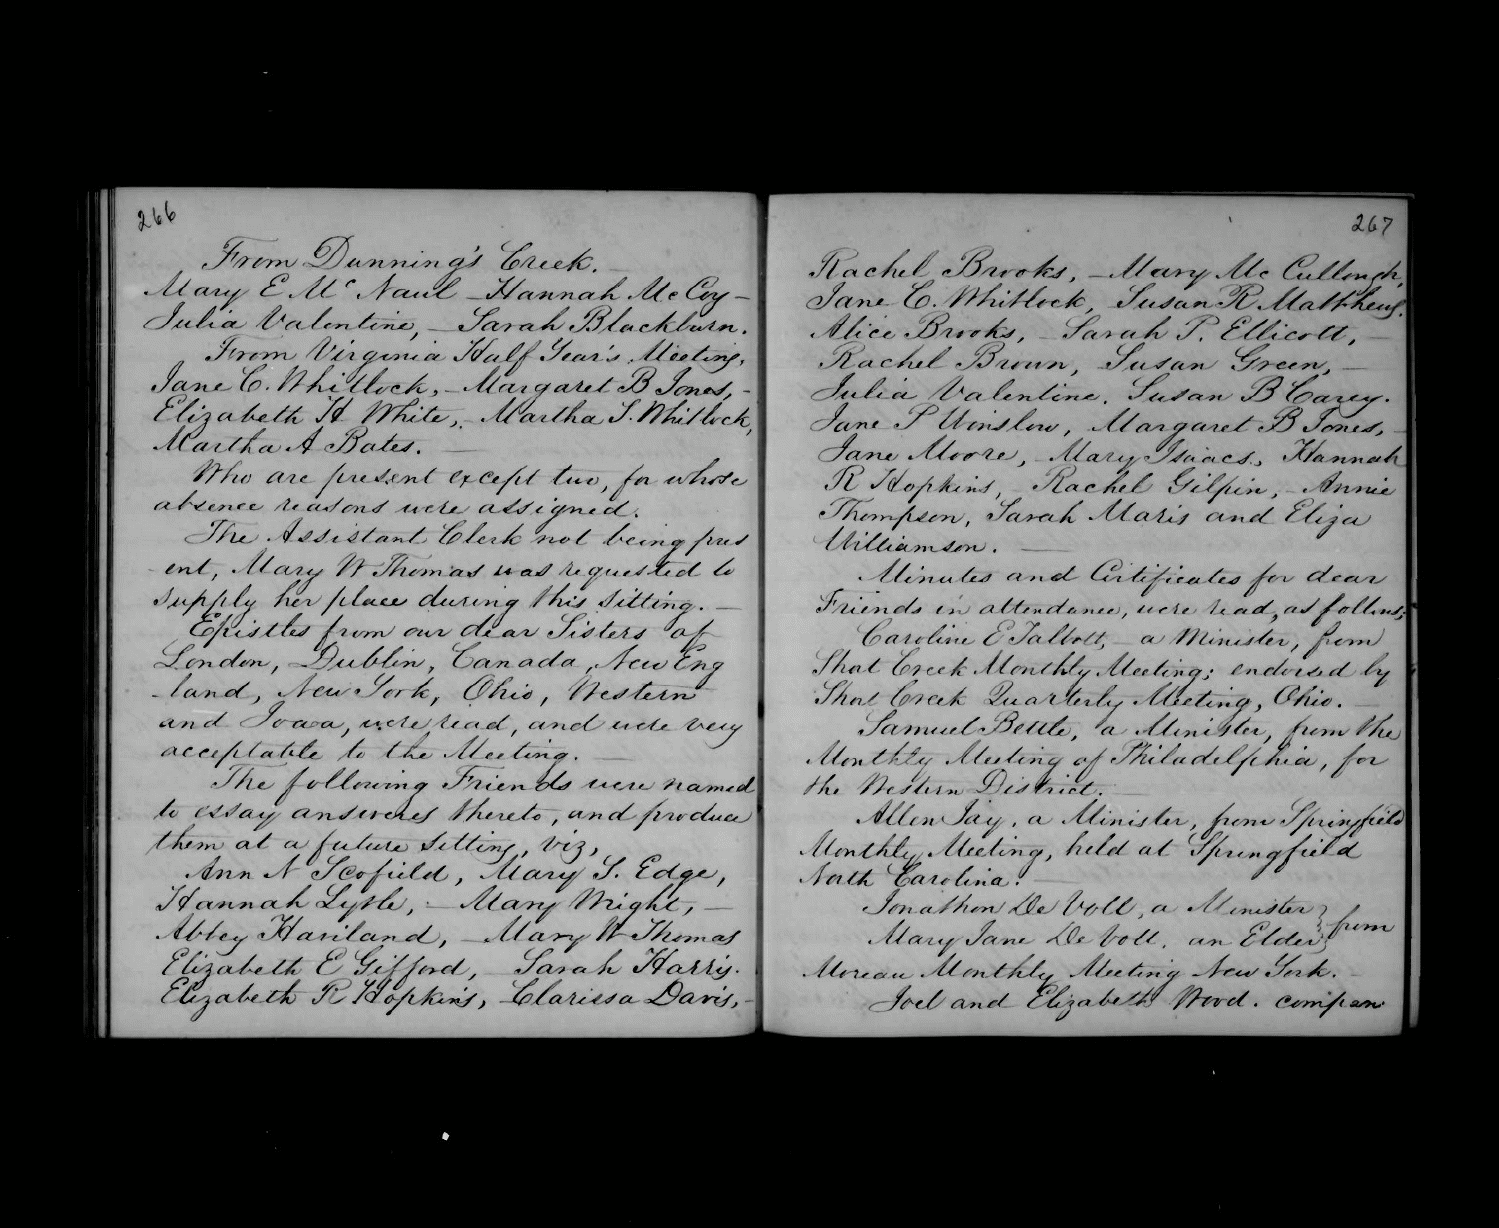 266
From Dunning's Creek.
Mary E Mc Naul – Hannah McCoy –
Julia Valentine, – Sarah Blackburn.
From Virginia Half Year's Meeting,
Jane C. Whitlock, – Margaret B Jones, –
Elizabeth H White, – Martha S. Whitlock,
Martha A Bates. —
Who are present except two, for whose
absence reasons were assigned.
The Assistant Clerk not being pres
ent, Mary W Thomas was requested to
supply her place during this sitting. —
Epistles from our dear Sisters of
London, – Dublin, Canada, New Eng
-land, New York, Ohio, Western
and Iowa, were read, and were very
acceptable to the Meeting. —
The following Friends were named
to essay answeres thereto, and produce
them at a future sitting, viz,
Ann N Scofield, Mary S. Edge,
Hannah Lytle, – Mary Wright, —
Abbey Haviland, – Mary W Thomas
Elizabeth E Gifford, – Sarah Harris.
Elizabeth R Hopkins, – Clarissa Davis, –
267
Rachel Brooks, – Mary Mc Cullough,
Jane C. Whitlock, Susan R Matthews.
Alice Brooks, – Sarah P. Ellicott, –
Rachel Broun, Susan Green, –
Julia Valentine. Susan B Carey.
Jane P Winslow, Margaret B Jones, –
Jane Moore, – Mary Isaacs, Hannah
R Hopkins, – Rachel Gilpin, – Annie
Thompson, Sarah Maris and Eliza
Williamson. —
Minutes and Certificates for dear
Friends in attendance, were read, as follows;
Caroline E Talbott, – a Minister, from
Short Creek Monthly Meeting; endorsed by
Short Creek Quarterly Meeting, Ohio. —
Samuel Bettle, a Minister, from the
Monthly Meeting of Philadelphia, for
the Western District. —
Allen Jay, a Minister, from Springfield
Monthly Meeting, held at Springfield
North Carolina. —
Jonathon De Voll, a Minister } from
Mary Jane De Voll. an Elder
Moreau Monthly Meeting New York. –
Joel and Elizabeth Wood. compan